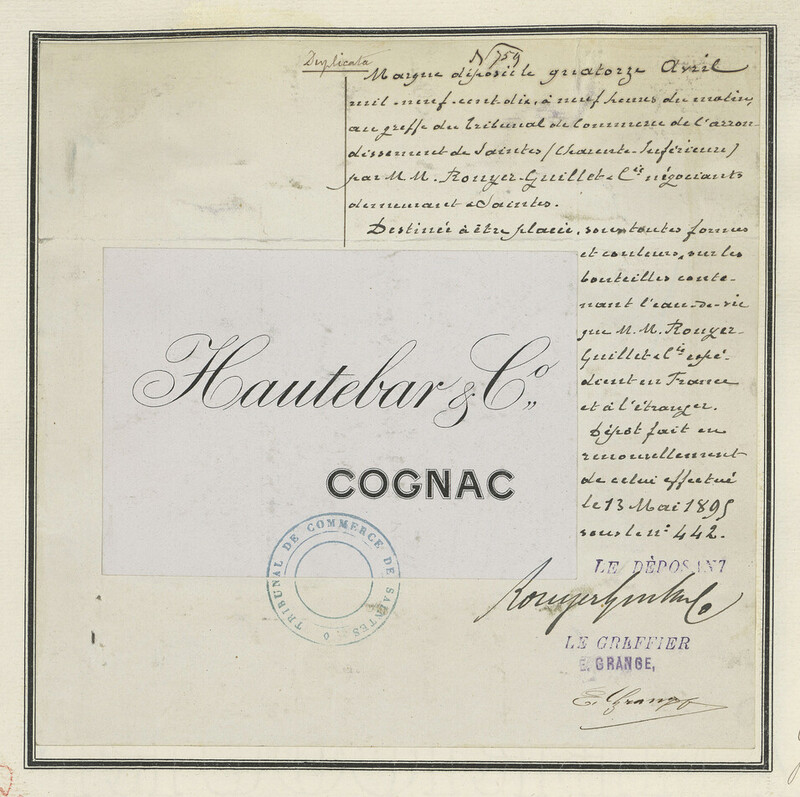 Duplicata
N° 759
Marque déposée le quatorze Avril
mil-neuf-cent-dix, à neuf heures du matin,
au greffe du Tribunal de Commerce de l'arron-
dissement de Saintes (Charente-Inférieure)
par M.M. Rouyer-Guillet & Cie négociants
demeurant à Saintes.
Destinée à être placée, sous toutes formes
et couleurs, sur les
bouteilles conte-
nant l'eau-de-vie
que M.M. Rouyer-
Guillet & Cie expé-
dient en France
et à l'étranger.
Dépôt fait en
renouvellement
de celui effectué
le 13 Mai 1895
sous le n° 442.
Hautebar & Co.,,
COGNAC
TRIBUNAL DE COMMERCE DE SAINTES
LE DÈPOSANT
Rouyer Guillet & Co
LE GREFFIER
E. GRANGE,
E. Grange